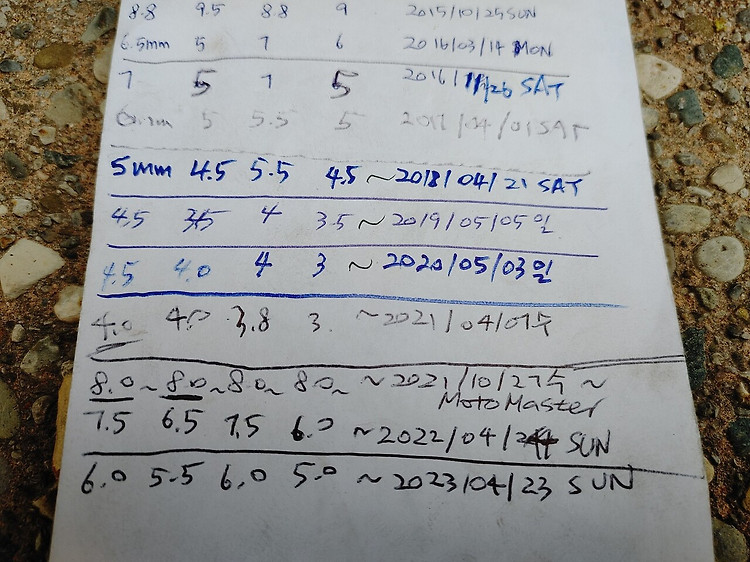 8.8 9.5 8.8 9 2015/10/25 SUN
6.5mm 5 7 6 2016/03/14 MON
7 5 7 5 2016/11/26 SAT
5 5.5 5 SAT
5mm 4.5 5.5 4.5 ~2018/04/21 SAT
4.5 3.5 4 3.5 ~2019/05/05일
4.5 4.0 4 3 ~2020/05/03일
4.0 4.0 3.8 3. ~2021/04/07수
8.0~ 8.0~ 8.0~ 8.0~ ~2021/10/27수~
MotoMaster
7.5 6.5 7.5 6.0 ~2022/04/24 SUN
6.0 5.5 6.0 5.0 ~2023/04/23 SUN